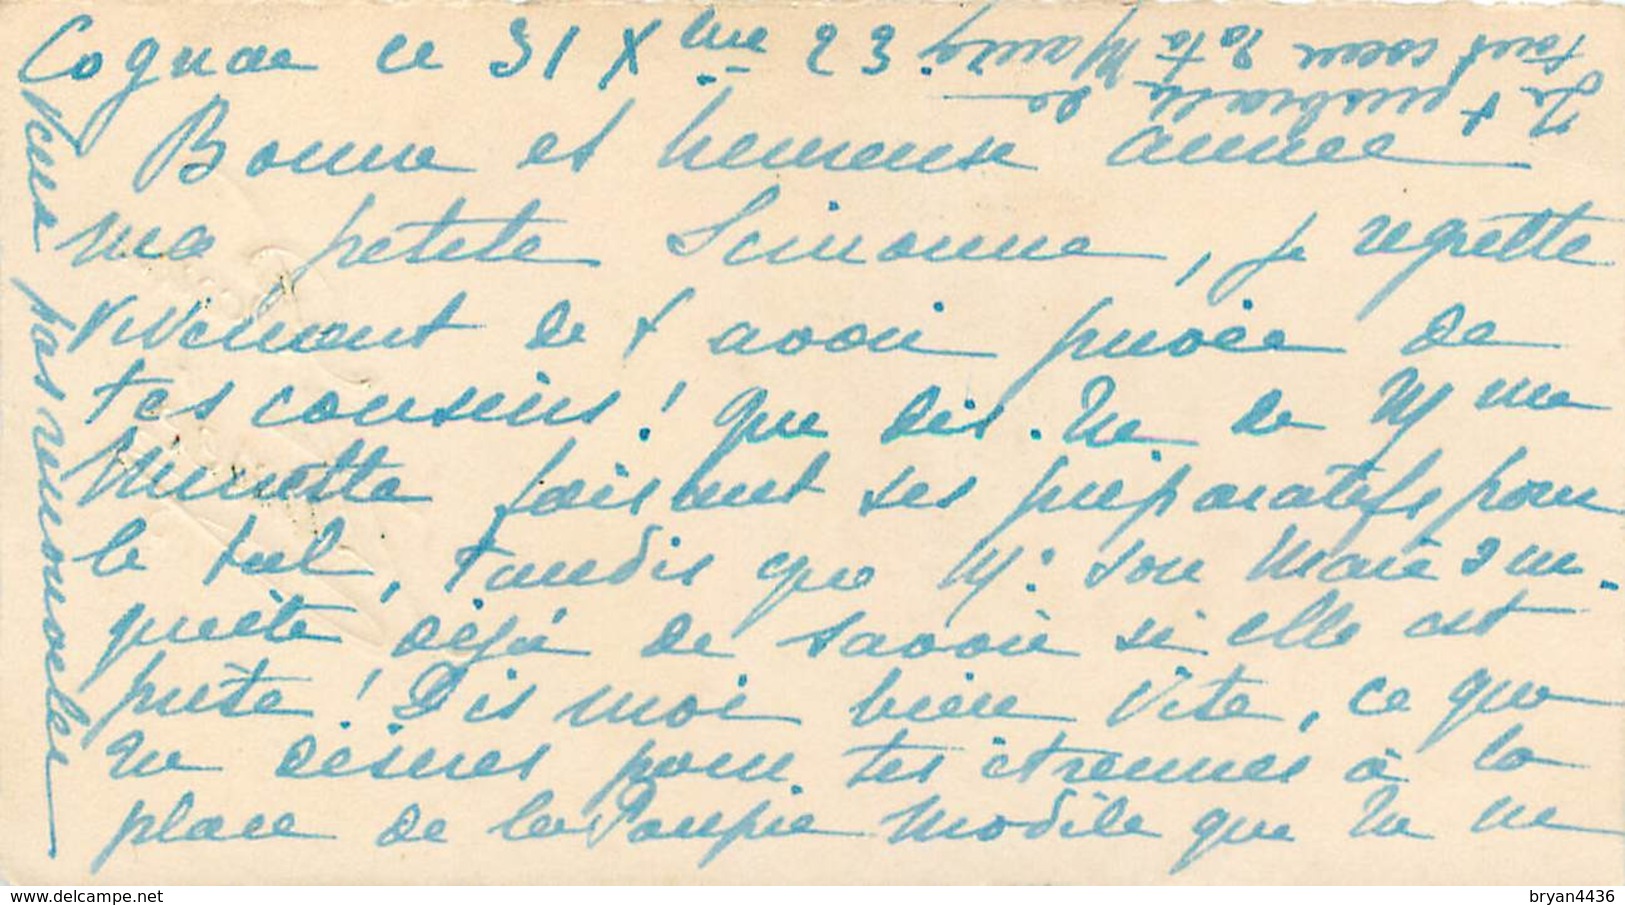 Cognac ce 31 Xbre 23
Bonne et heureuse année
ma petite Simonne, je regrette
vivement de t'avoir privée de
tes cousins! que dis-tu de Mme
Minette faisant ses préparatifs pour
le bal, tandis que Mr son Mari s'in-
quiète déjà de savoir si elle est
prête! Dis moi bien vite, ce que
tu désires pour tes étrennes à la
place de la Poupée modèle que tu ne
veux pas renouveler
Je t'embrasse de
tout coeur ta tte Mainz
delcampe.net
bryan4436